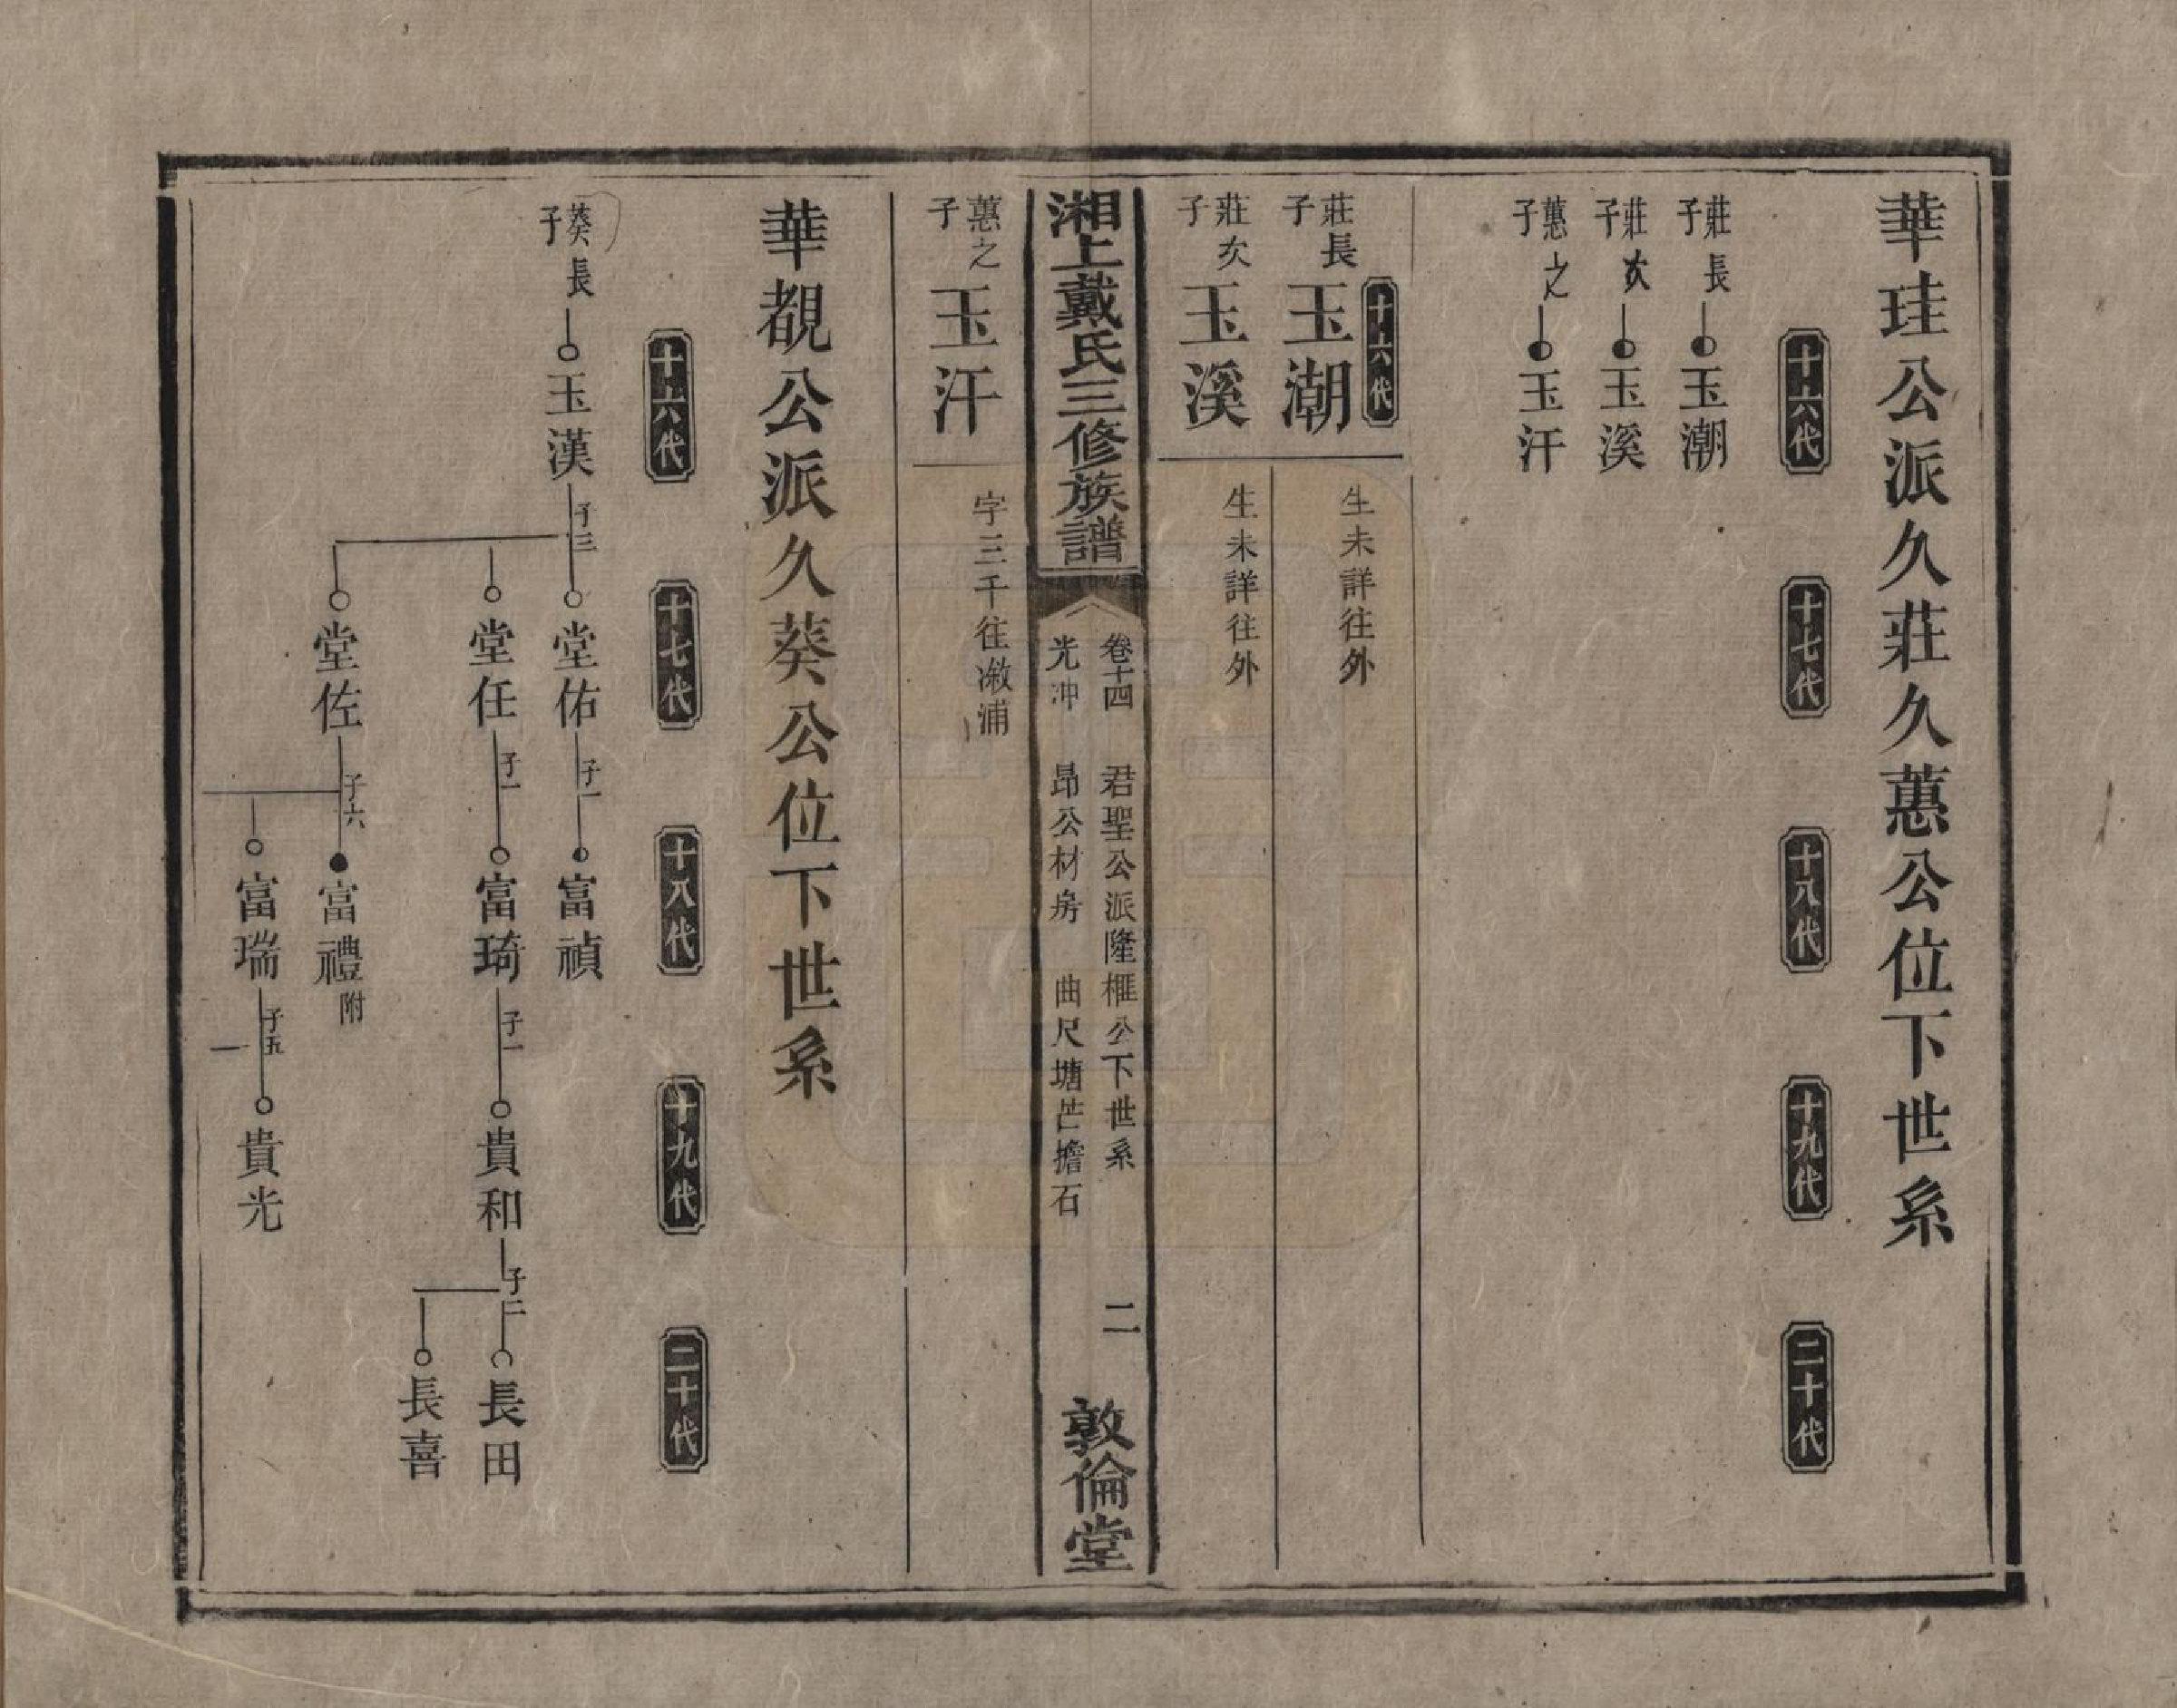 華珪公派久莊久蕙公位下世系
十六代
十七代
十八代
十九代
二十代
莊長子 玉潮
莊次子 玉溪
蕙之子 玉汗
十六代
莊長子 玉潮 生未詳往外
莊次子 玉溪 生未詳往外
湘上戴氏三修族譜
卷十四 君聖公派隆榧公下世系 二
光冲 昂公材房 曲尺塘芒擔石
敦倫堂
蕙之子 玉汗 字三千往溆浦
華覩公派久葵公位下世系
十六代
十七代
十八代
十九代
二十代
葵長子 玉漢 子三 堂佑 子一 富禎
堂任 子一 富琦 子一 貴和 子二 長田
長喜
堂佐 子六 富禮 附
富瑞 子五 貴光